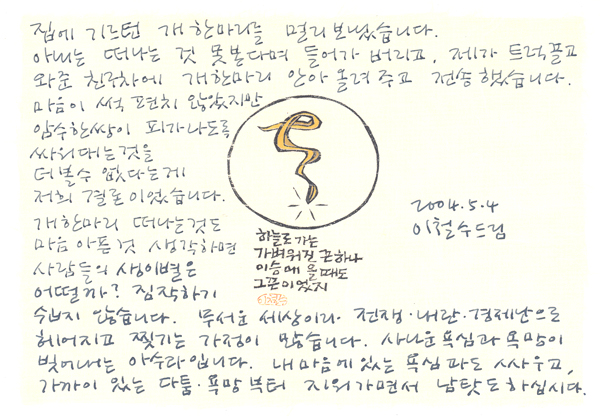 집에 기르던 개 한마리를 멀리 보냈습니다.
아내는 떠나는 것 못본다며 들어가 버리고, 제가 트럭끌고
와준 친구차에 개 한마리 안아 올려 주고 전송했습니다.
마음이 썩 편치 않았지만
암수한쌍이 피가나도록
싸워대는것을
더 볼수 없다는게
저희 결론이었습니다.
개 한마리 떠나는것도
마음 아픈것 생각하면
사람들의 생이별은
어떨까? 짐작하기
수월치 않습니다. 무서운 세상이라 전쟁·내란·경제난으로
헤어지고 찢기는 가정이 많습니다. 사나운 욕심과 욕망이
빚어내는 아수라입니다. 내 마음에 있는 욕심과도 싸우고,
가까이 있는 다툼·욕망부터 지워가면서 남탓도 하십시다.
하늘로 가는
가벼워진 근 하나
이승에 올 때도
그끈이었지
2004.5.4
이철수드림